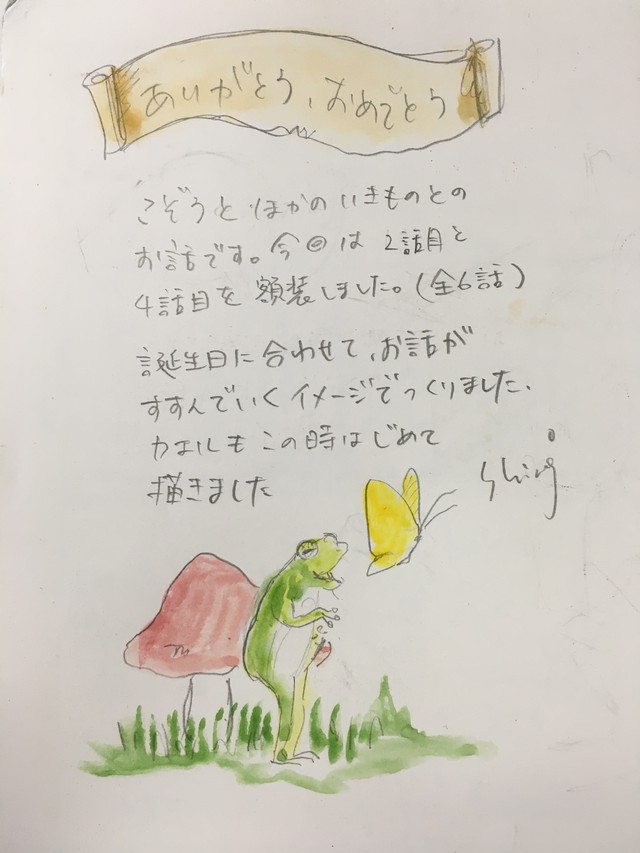 ありがとう、おめでとう
こぞうとほかのいきものとの
お話です。今回は2話目と
4話目を額装しました。(全6話)
誕生日に合わせて、お話が
すすんでいくイメージでつくりました、
カエルもこの時はじめて
描きました